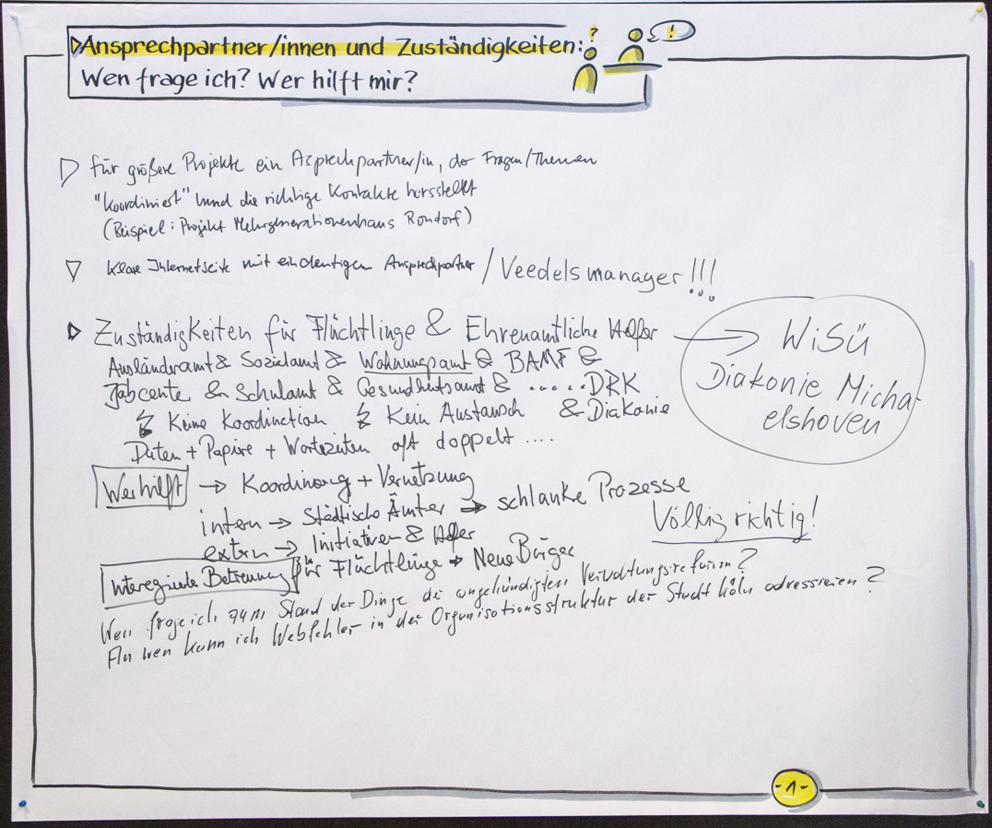 Ansprechpartner/innen und Zuständigkeiten:
Wen frage ich? Wer hilft mir?
?
!
für größere Projekte ein Asprechpartner/in, der Fragen/Themen
"koordiniert" und die richtige Kontakte herstellt
(Beispiel: Projekt Mehrgenerationenhaus Rondorf)
Klare Internetseite mit eindeutigen Ansprechpartner / Veedelsmanager!!!
Zuständigkeiten für Flüchtlinge & Ehrenamtliche Helfer →
WiSü
Diakonie Micha-
elshoven
Ausländeramt & Sozialamt & Wohnungsamt & BAMF &
Jobcente & Schulamt & Gesundheitsamt & ...... DRK
Keine Koordination Kein Austausch & Diakonie
Daten + Papiere + Wartezeiten oft doppelt ....
Wer hilft → Koordinierung + Vernetzung
intern → Städtische Ämter → schlanke Prozesse
Völlig richtig!
extern → Initiativen & Helfer
Betreuung für Flüchtlinge → Neue Bürger
Wen frage ich zum Stand der Dinge der angekündigten Verwaltungsreform?
An wen kann ich Webfehler in der Organisationsstruktur der Stadt Köln adressieren?
-1-